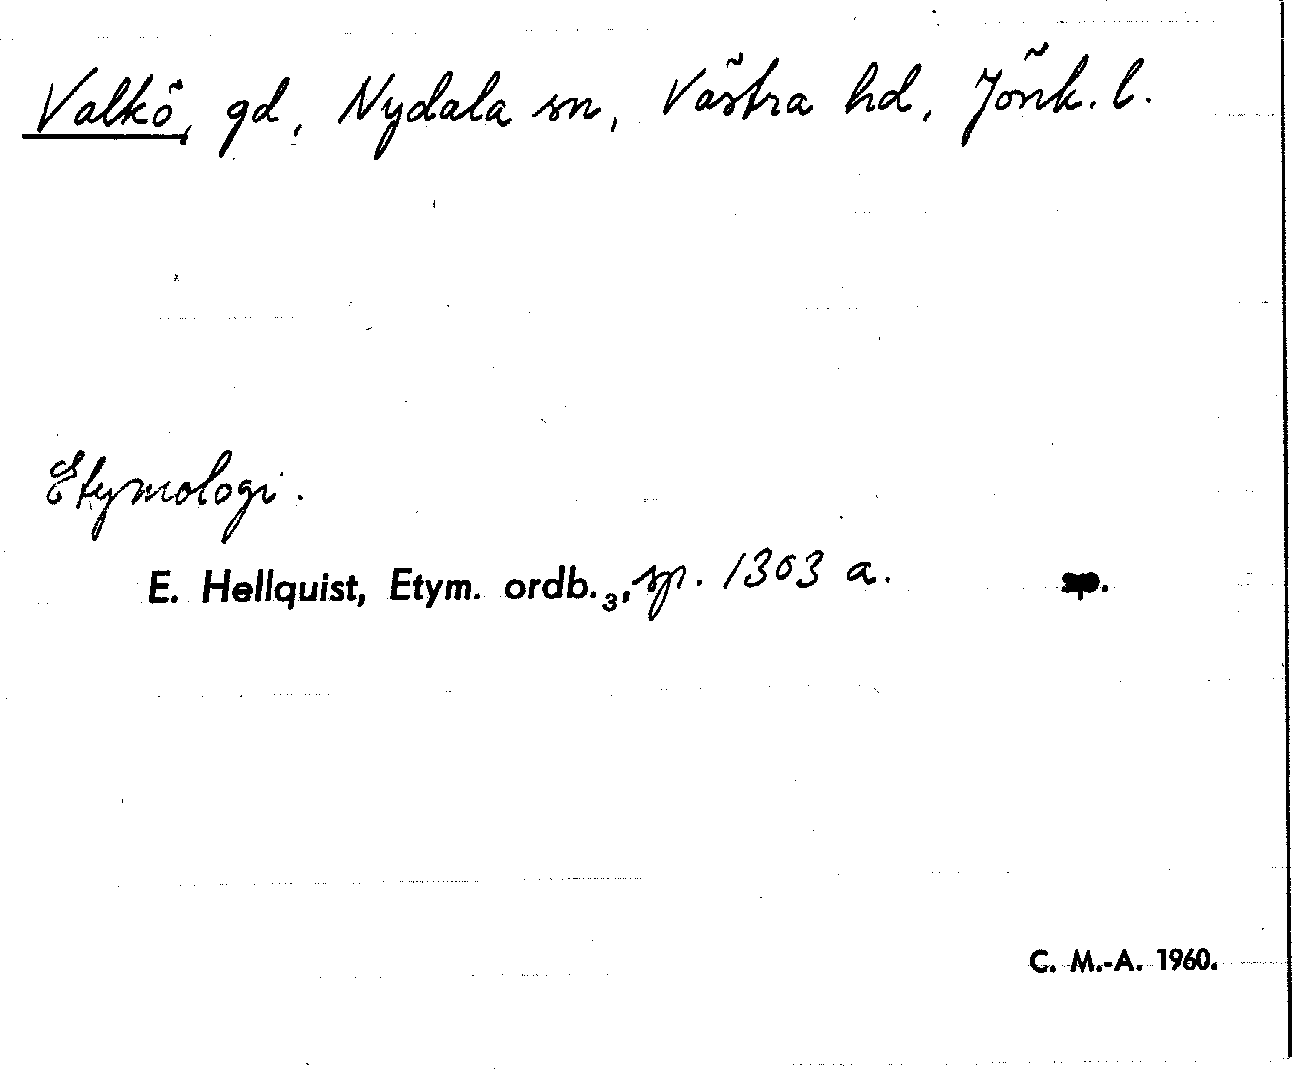 Valkö, gd, Nydala sn, Västra hd, Jönk. l.
Etymologi.
E. Hellquist, Etym. ordb.₃, sp. 1303 a.
C. M.-A. 1960.